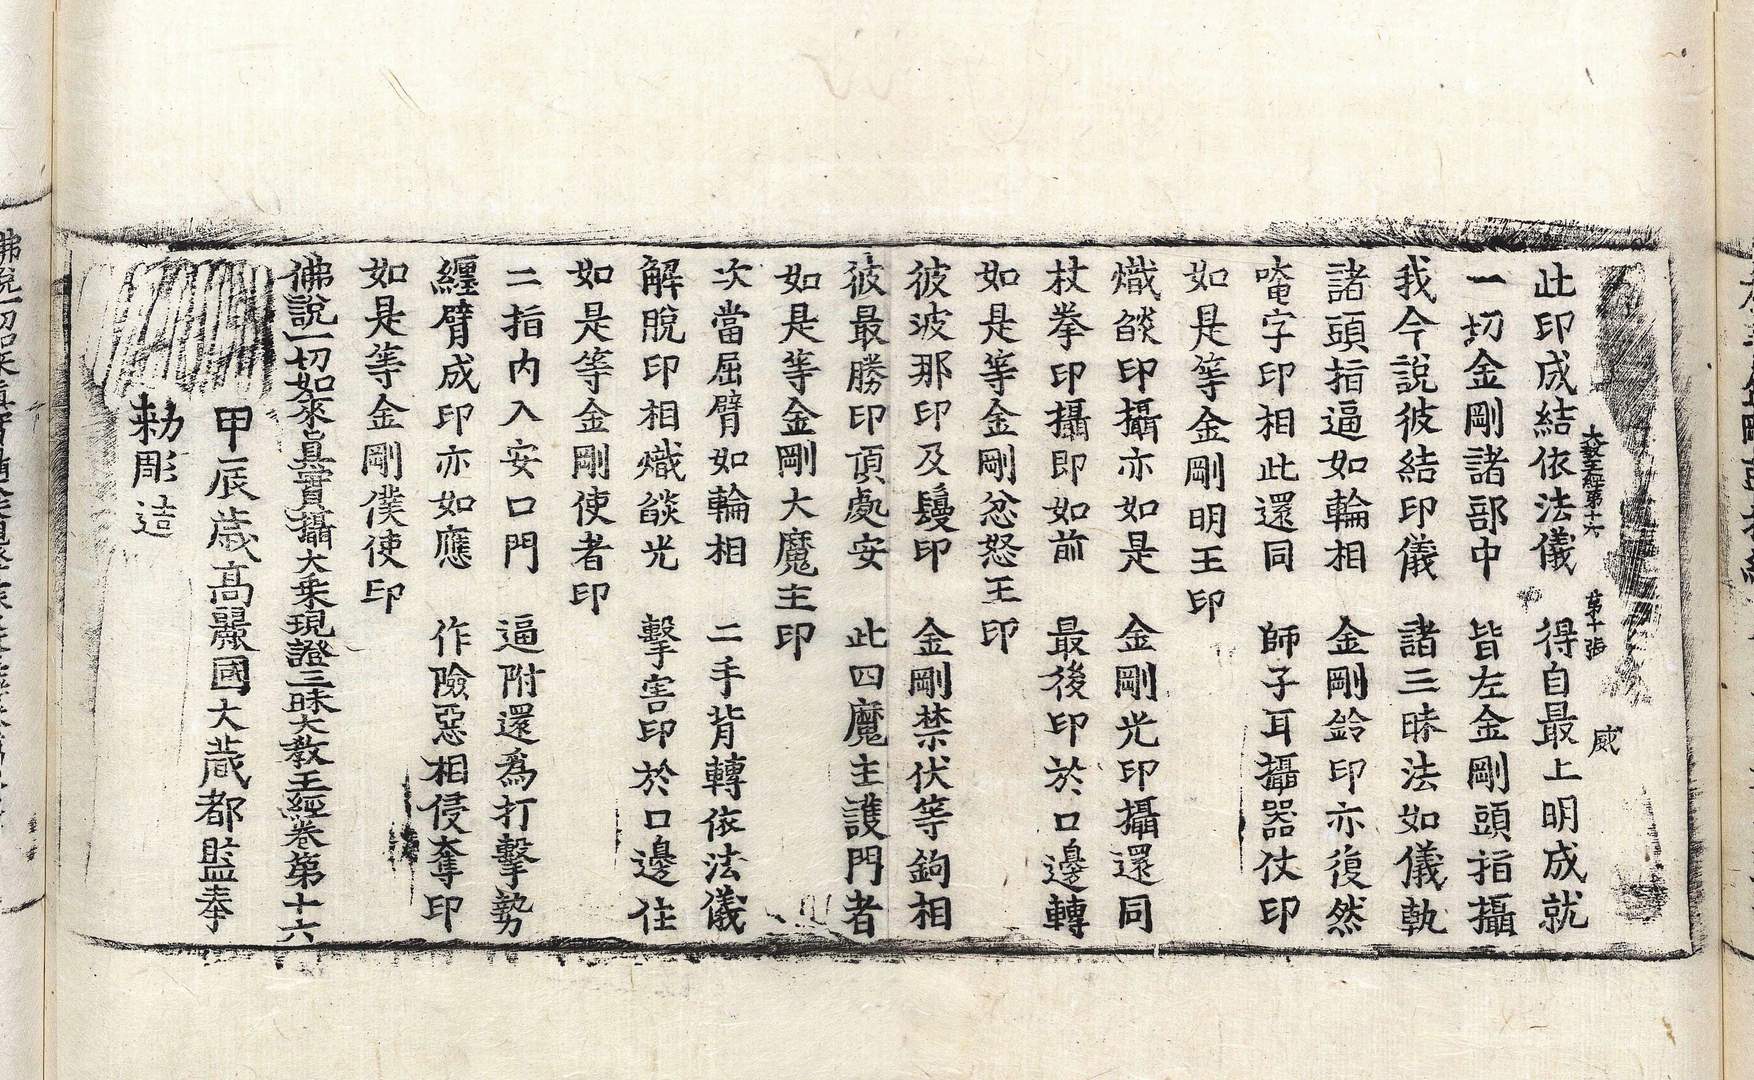 大教王經第十六 第十張 威
此印成結依法儀 得自最上明成就
一切金剛諸部中 皆左金剛頭指攝
我今說彼結印儀 諸三昧法如儀軌
諸頭指逼如輪相 金剛鈴印亦復然
唵字印相此還同 師子耳攝器仗印
如是等金剛明王印
熾燄印攝亦如是 金剛光印攝還同
杖拳印攝即如前 最後印於口邊轉
如是等金剛忿怒王印
彼波那印及鬘印 金剛禁伏等鉤相
彼最勝印頂處安 此四魔主護門者
如是等金剛大魔主印
次當屈臂如輪相 二手背轉依法儀
解脫印相熾燄光 擊害印於口邊住
如是等金剛使者印
二指內入安口門 逼附還為打擊勢
纏臂成印亦如應 作險惡相侵奪印
如是等金剛僕使印
佛說一切如來眞實攝大乘現證三昧大教王經卷第十六
甲辰歲高麗國大藏都監奉
勅彫造